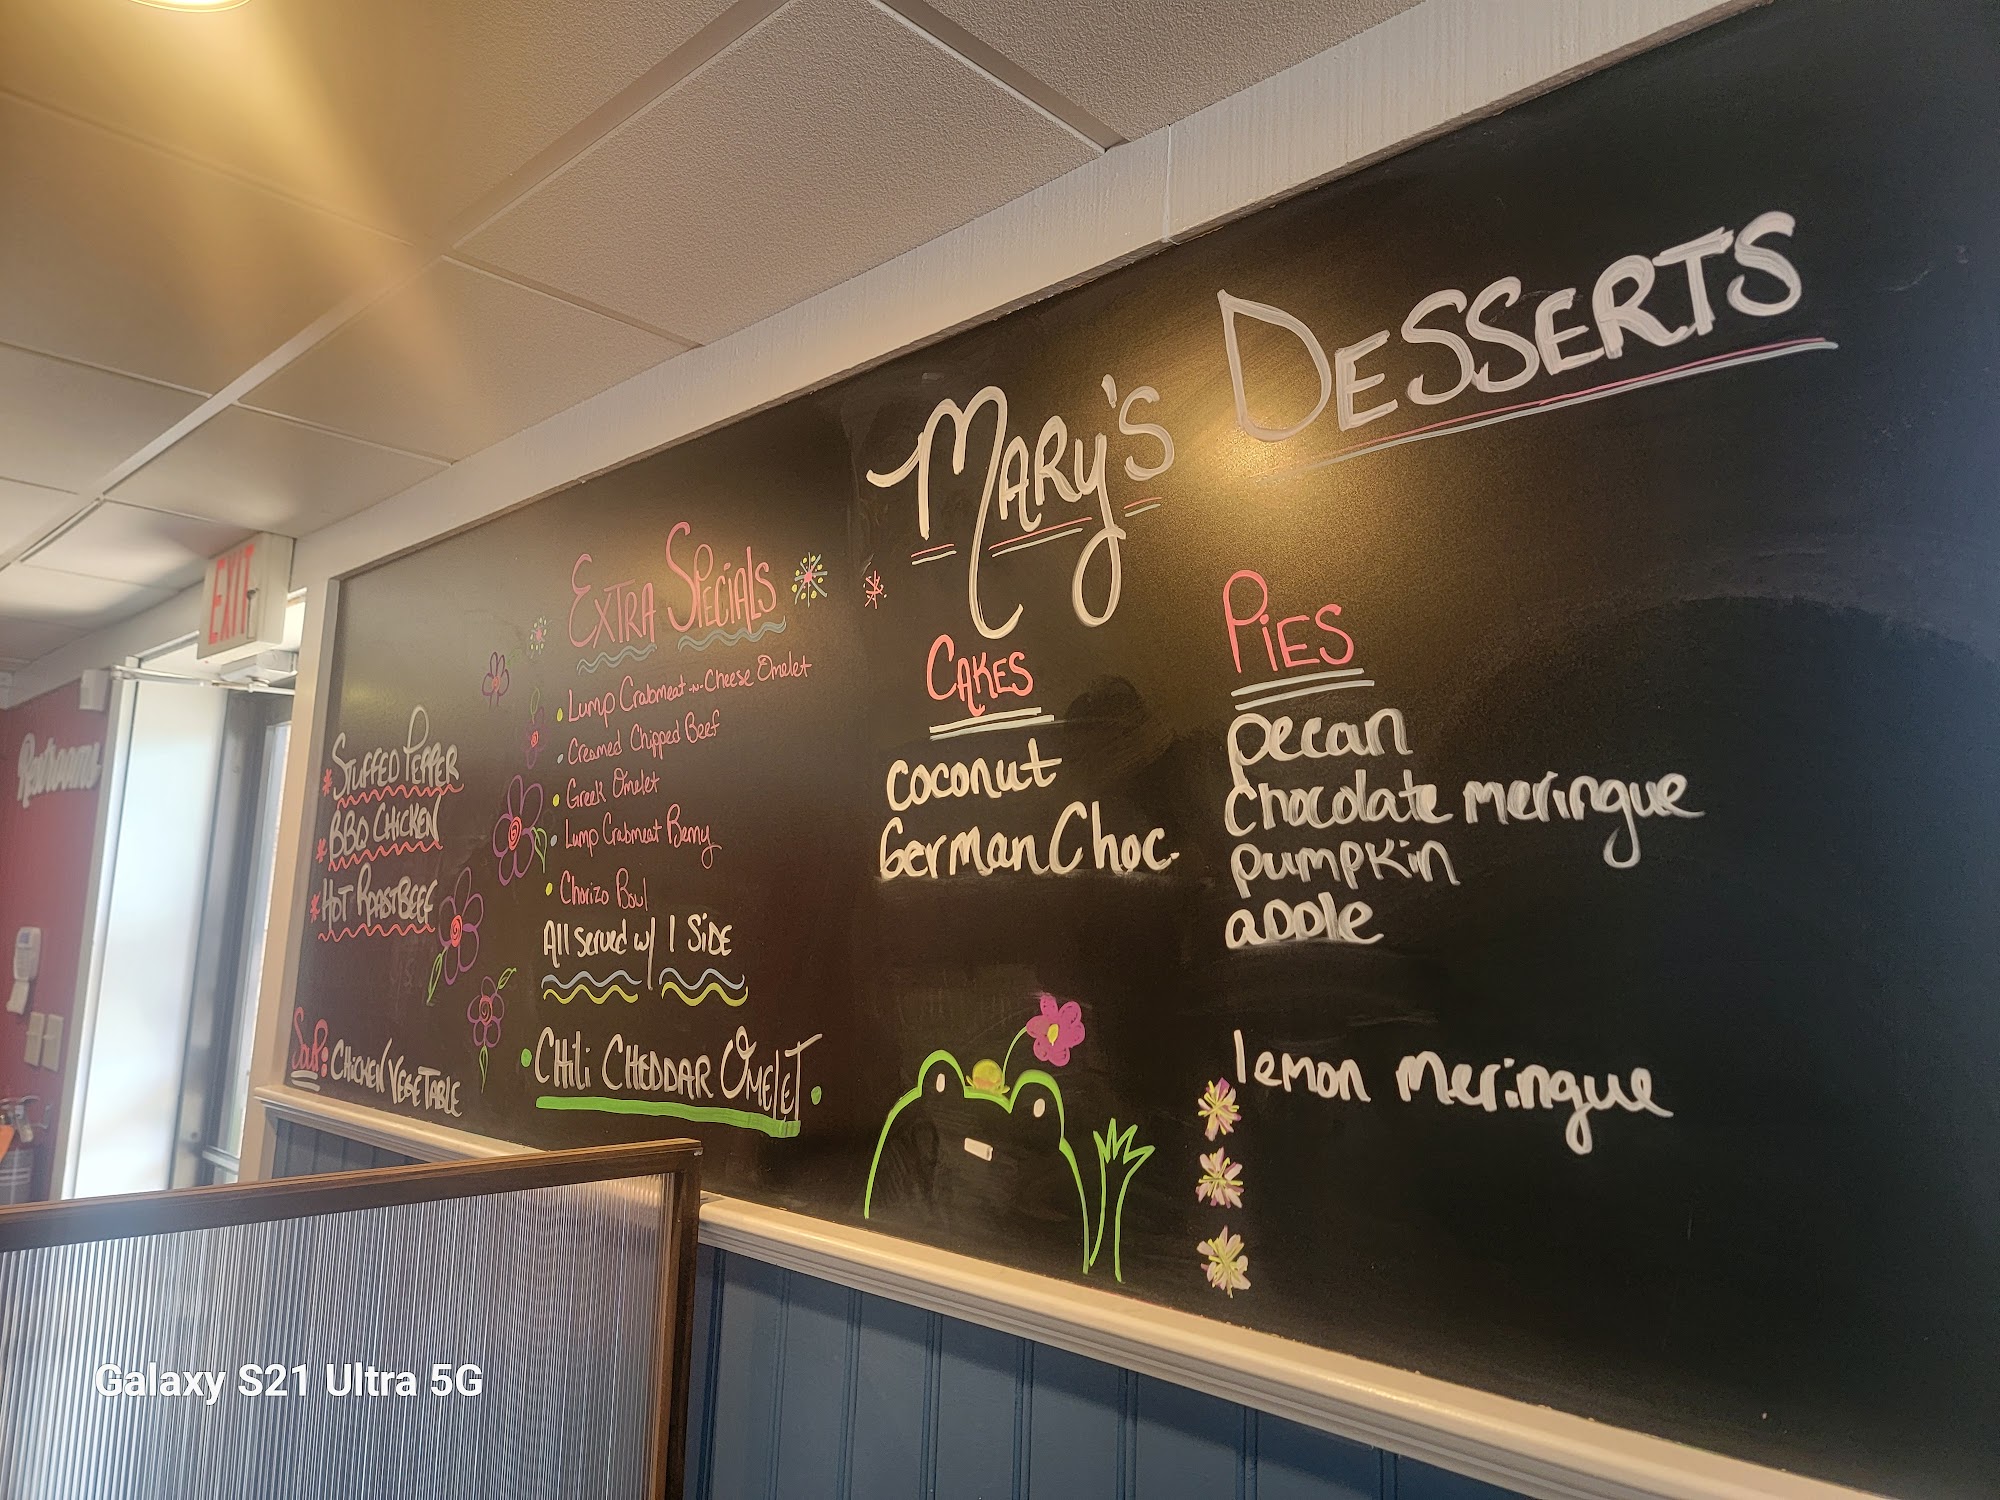 EXIT
Restrooms
STUFFED PEPPER
BBQ CHICKEN
HOT ROAST BEEF
SOUP: CHICKEN VEGETABLE
EXTRA SPECIALS
Lump Crabmeat -n- Cheese Omelet
Creamed Chipped Beef
Greek Omelet
Lump Crabmeat Benny
Chorizo Bowl
All served w/ 1 SIDE
CHILI CHEDDAR OMELET
MARY'S DESSERTS
CAKES
coconut
German Choc.
PIES
pecan
chocolate meringue
pumpkin
apple
lemon meringue
Galaxy S21 Ultra 5G